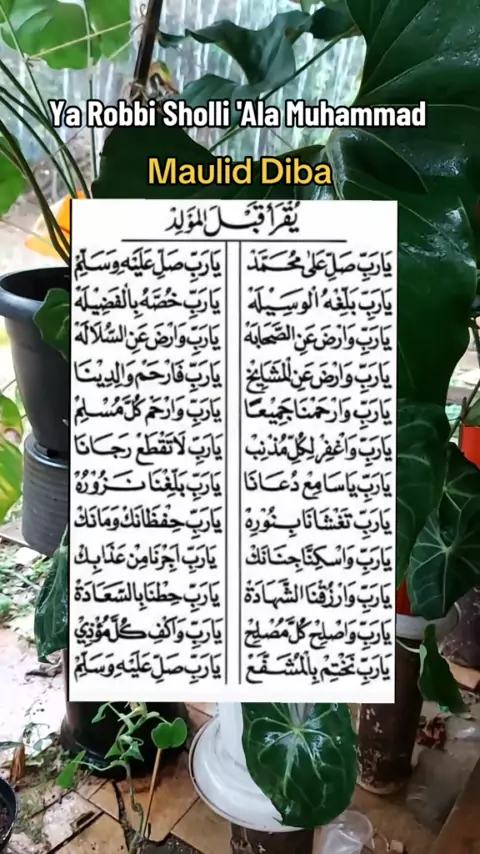 Ya Robbi Sholli 'Ala Muhammad
Maulid Diba
يُقْرَأُ قَبْلَ الْمَوْلِدْ
يَارَبِّ صَلِّ عَلٰى مُحَمَّدْ يَارَبِّ صَلِّ عَلَيْهِ وَسَلِّمْ
يَارَبِّ بَلِّغْهُ الْوَسِيْلَهْ يَارَبِّ خُصَّهُ بِالْفَضِيْلَهْ
يَارَبِّ وَارْضَ عَنِ الصَّحَابَهْ يَارَبِّ وَارْضَ عَنِ السُّلَالَهْ
يَارَبِّ وَارْضَ عَنِ الْمَشَايِخْ يَارَبِّ فَارْحَمْ وَالِدِيْنَا
يَارَبِّ وَارْحَمْنَا جَمِيْعًا يَارَبِّ وَارْحَمْ كُلَّ مُسْلِمْ
يَارَبِّ وَاغْفِرْ لِكُلِّ مُذْنِبْ يَارَبِّ لَاتَقْطَعْ رَجَانَا
يَارَبِّ يَاسَامِعْ دُعَانَا يَارَبِّ بَلِّغْنَا نَزُوْرُهْ
يَارَبِّ تَغْشَانَا بِنُوْرِهْ يَارَبِّ حِفْظَانَكْ وَمَانَكْ
يَارَبِّ وَاسْكِنَّا جِنَانَكْ يَارَبِّ اَجِرْنَا مِنْ عَذَابِكْ
يَارَبِّ وَارْزُقْنَا الشَّهَادَةْ يَارَبِّ حِطْنَا بِالسَّعَادَةْ
يَارَبِّ وَاصْلِحْ كُلَّ مُصْلِحْ يَارَبِّ وَاكْفِ كُلَّ مُؤْذِيْ
يَارَبِّ نَخْتِمْ بِالْمُشَفَّعْ يَارَبِّ صَلِّ عَلَيْهِ وَسَلِّمْ